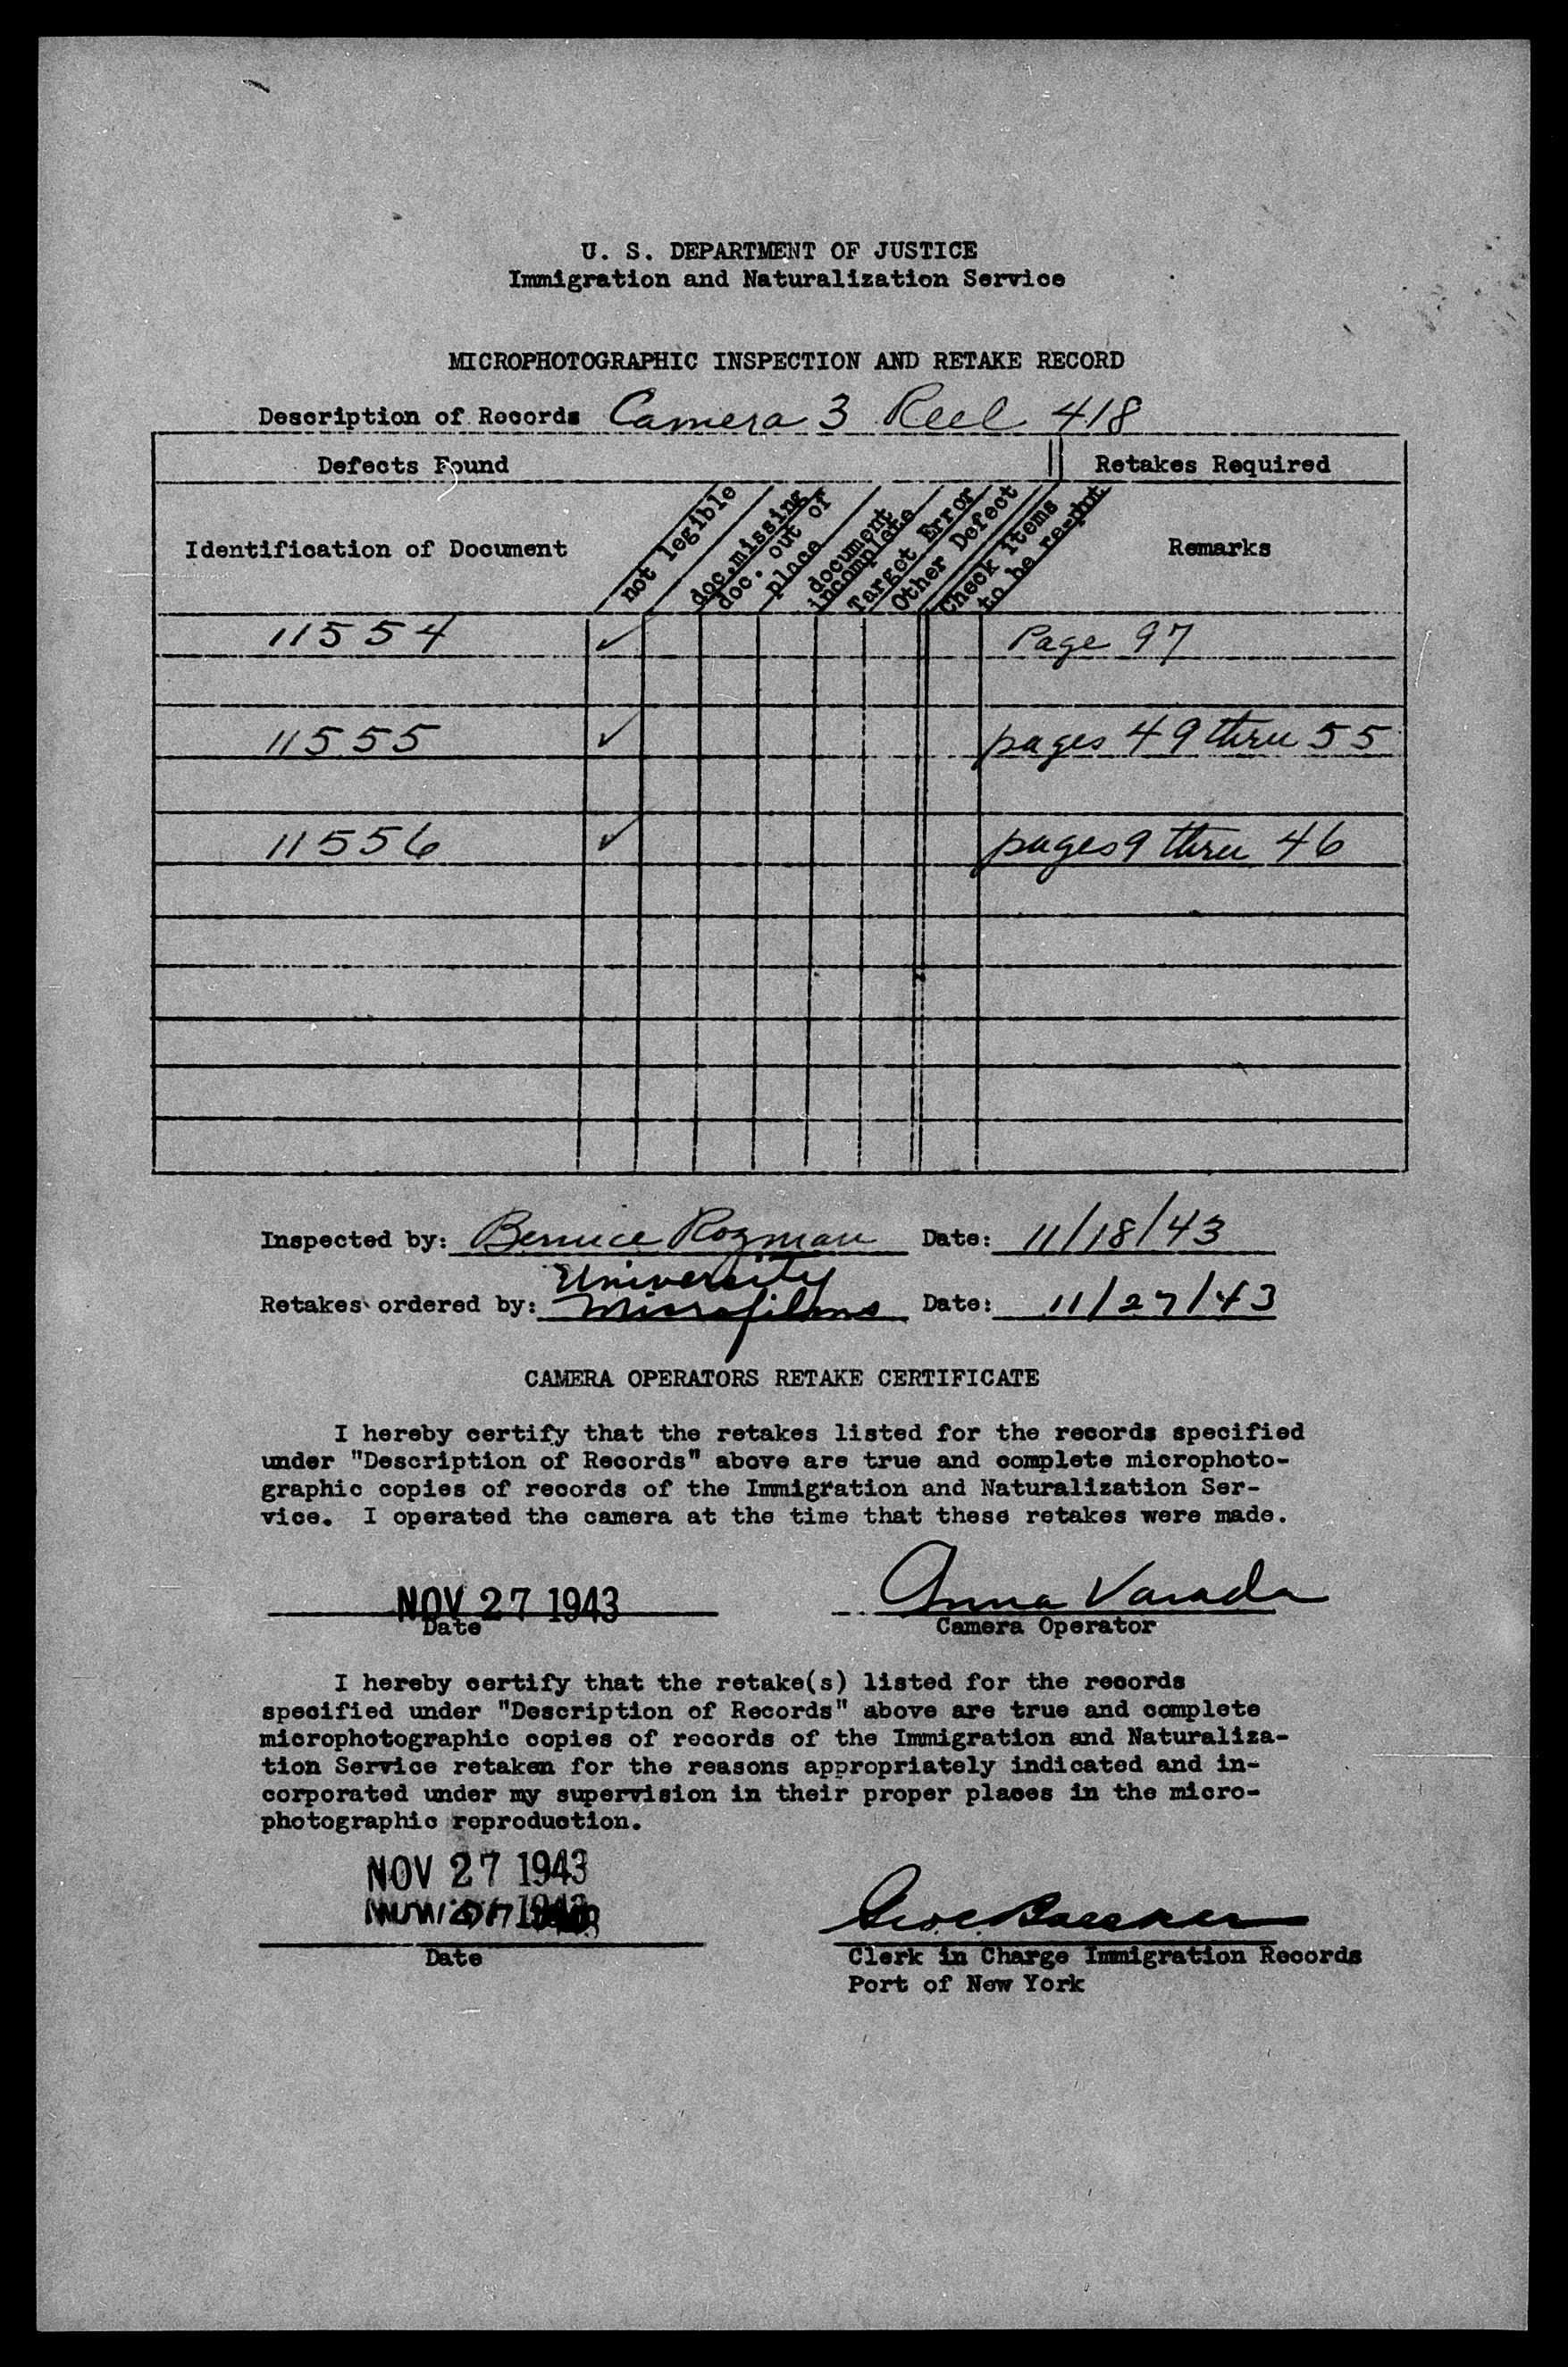 U. S. DEPARTMENT OF JUSTICE
Immigration and Naturalization Service
MICROPHOTOGRAPHIC INSPECTION AND RETAKE RECORD
Description of Records Camera 3 Reel 418
Defects Found Retakes Required
Identification of Document not legible doc. missing doc. out of place document incomplete Target Error Other Defect Check items to be re-pht Remarks
11554 ✓ Page 97
11555 ✓ pages 49 thru 55
11556 ✓ pages 9 thru 46
Inspected by: Bernice Rozman Date: 11/18/43
University
Retakes ordered by: Microfilms Date: 11/27/43
CAMERA OPERATORS RETAKE CERTIFICATE
I hereby certify that the retakes listed for the records specified
under "Description of Records" above are true and complete microphoto-
graphic copies of records of the Immigration and Naturalization Ser-
vice. I operated the camera at the time that these retakes were made.
NOV 27 1943 Anna Varada
Date Camera Operator
I hereby certify that the retake(s) listed for the records
specified under "Description of Records" above are true and complete
microphotographic copies of records of the Immigration and Naturaliza-
tion Service retaken for the reasons appropriately indicated and in-
corporated under my supervision in their proper places in the micro-
photographic reproduction.
NOV 27 1943
Date Clerk in Charge Immigration Records
Port of New York